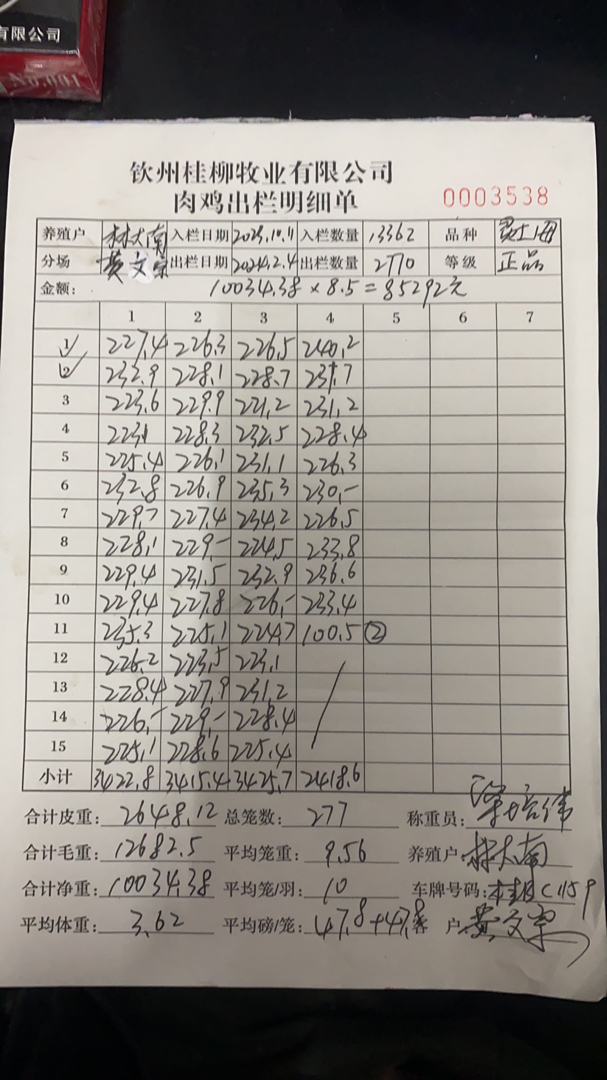 有限公司
钦州桂柳牧业有限公司
肉鸡出栏明细单
0003538
养殖户 林大南 入栏日期 2023.10.11 入栏数量 13362 品种
分场 黄文 出栏日期 2024.2.4 出栏数量 2770 等级 正品
金额: 10034.38 × 8.5 = 85292元
1 2 3 4 5 6 7
1 227.4 226.3 226.5 240.2
2 232.9 228.1 228.7 231.7
3 223.6 229.9 221.2 231.2
4 223.1 228.3 232.5 228.4
5 225.4 226.1 231.1 226.3
6 232.8 226.9 235.3 230.-
7 229.7 227.4 234.2 226.5
8 228.1 229.- 224.5 233.8
9 229.4 231.5 232.9 236.6
10 229.4 227.8 226.- 233.4
11 235.3 225.1 224.7 100.5 ②
12 226.2 223.5 223.1
13 228.4 227.9 231.2
14 226.- 229.- 228.4
15 225.1 228.6 225.4
小计 3422.8 3415.4 3425.7 2418.6
合计皮重: 2648.12 总笼数: 277 称重员:
合计毛重: 12682.5 平均笼重: 9.56 养殖户: 林大南
合计净重: 10034.38 平均笼/羽: 10 车牌号码:
平均体重: 3.62 平均磅/笼: 47.8+47.8 客 户 黄文